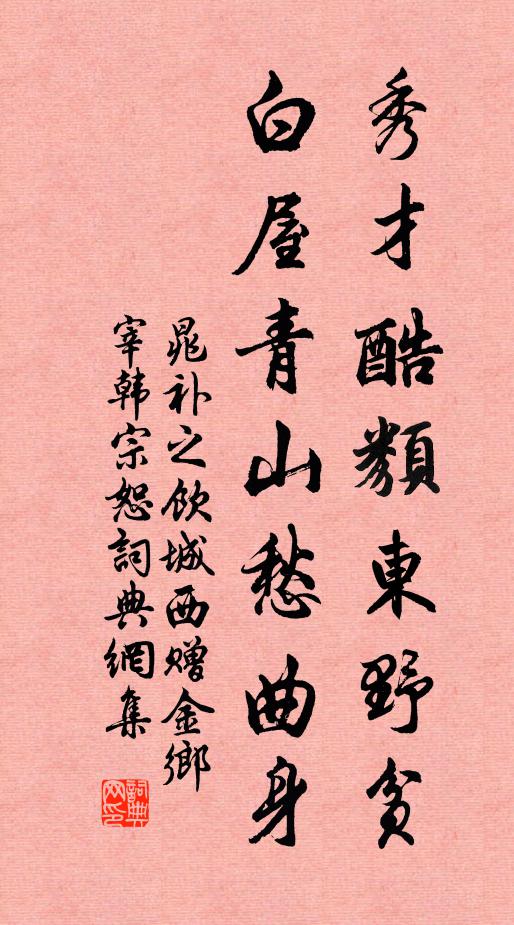 秀才酷類東野貧
白屋青山愁曲身
晁补之飲城西贈金鄉
宰韩宗恕詞典網集
詞典
网印